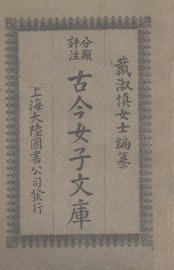 戴淑慎女士編纂
分類
評注
古今女子文庫
上海大陸圖書公司發行